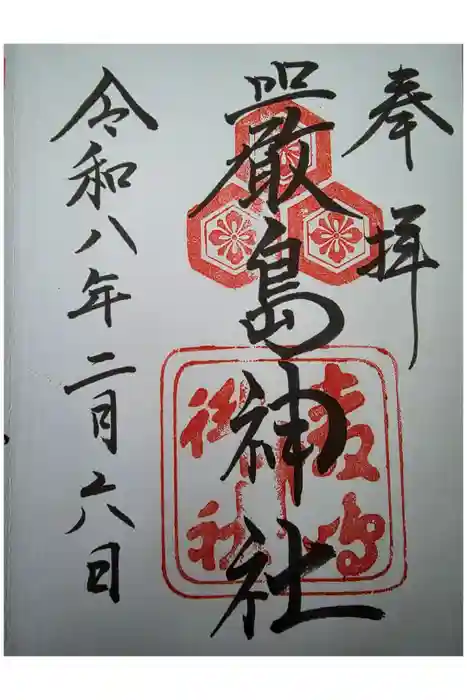 奉拝
嚴島神社
令和八年二月六日